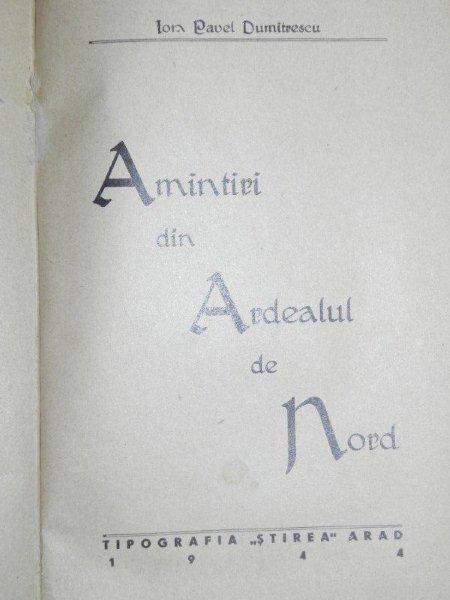 Ion Pavel Dumitrescu
Amintiri
din
Ardealul
de
Nord
TIPOGRAFIA „ŞTIREA“ ARAD
1 9 4 4